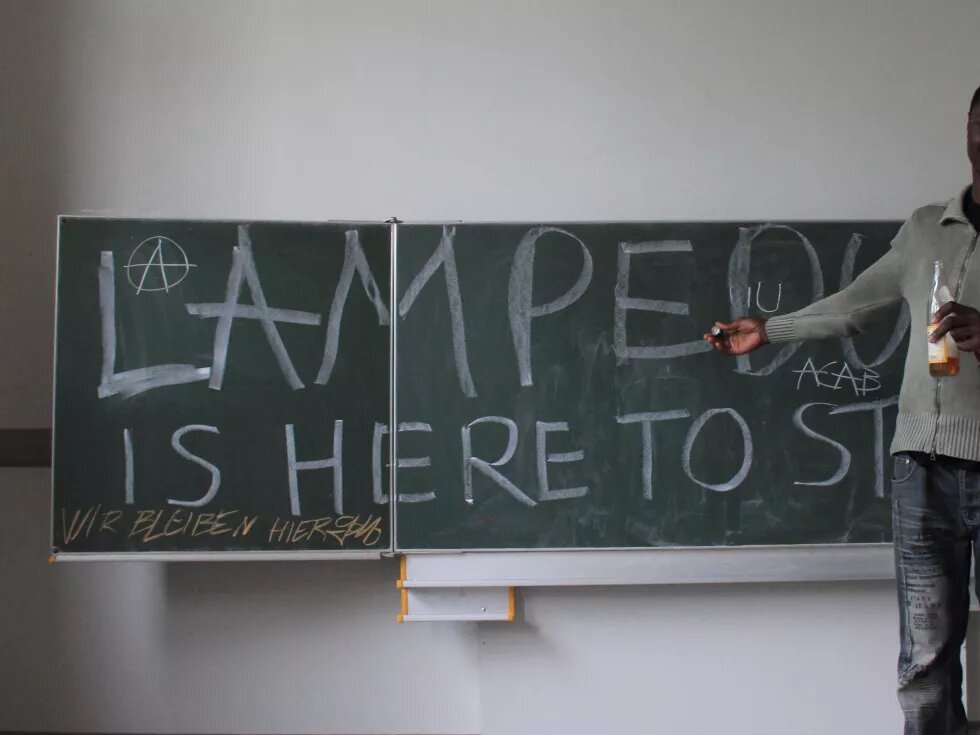 LAMPEDU
IU
ACAB
IS HERE TO ST
WIR BLEIBEN HIER